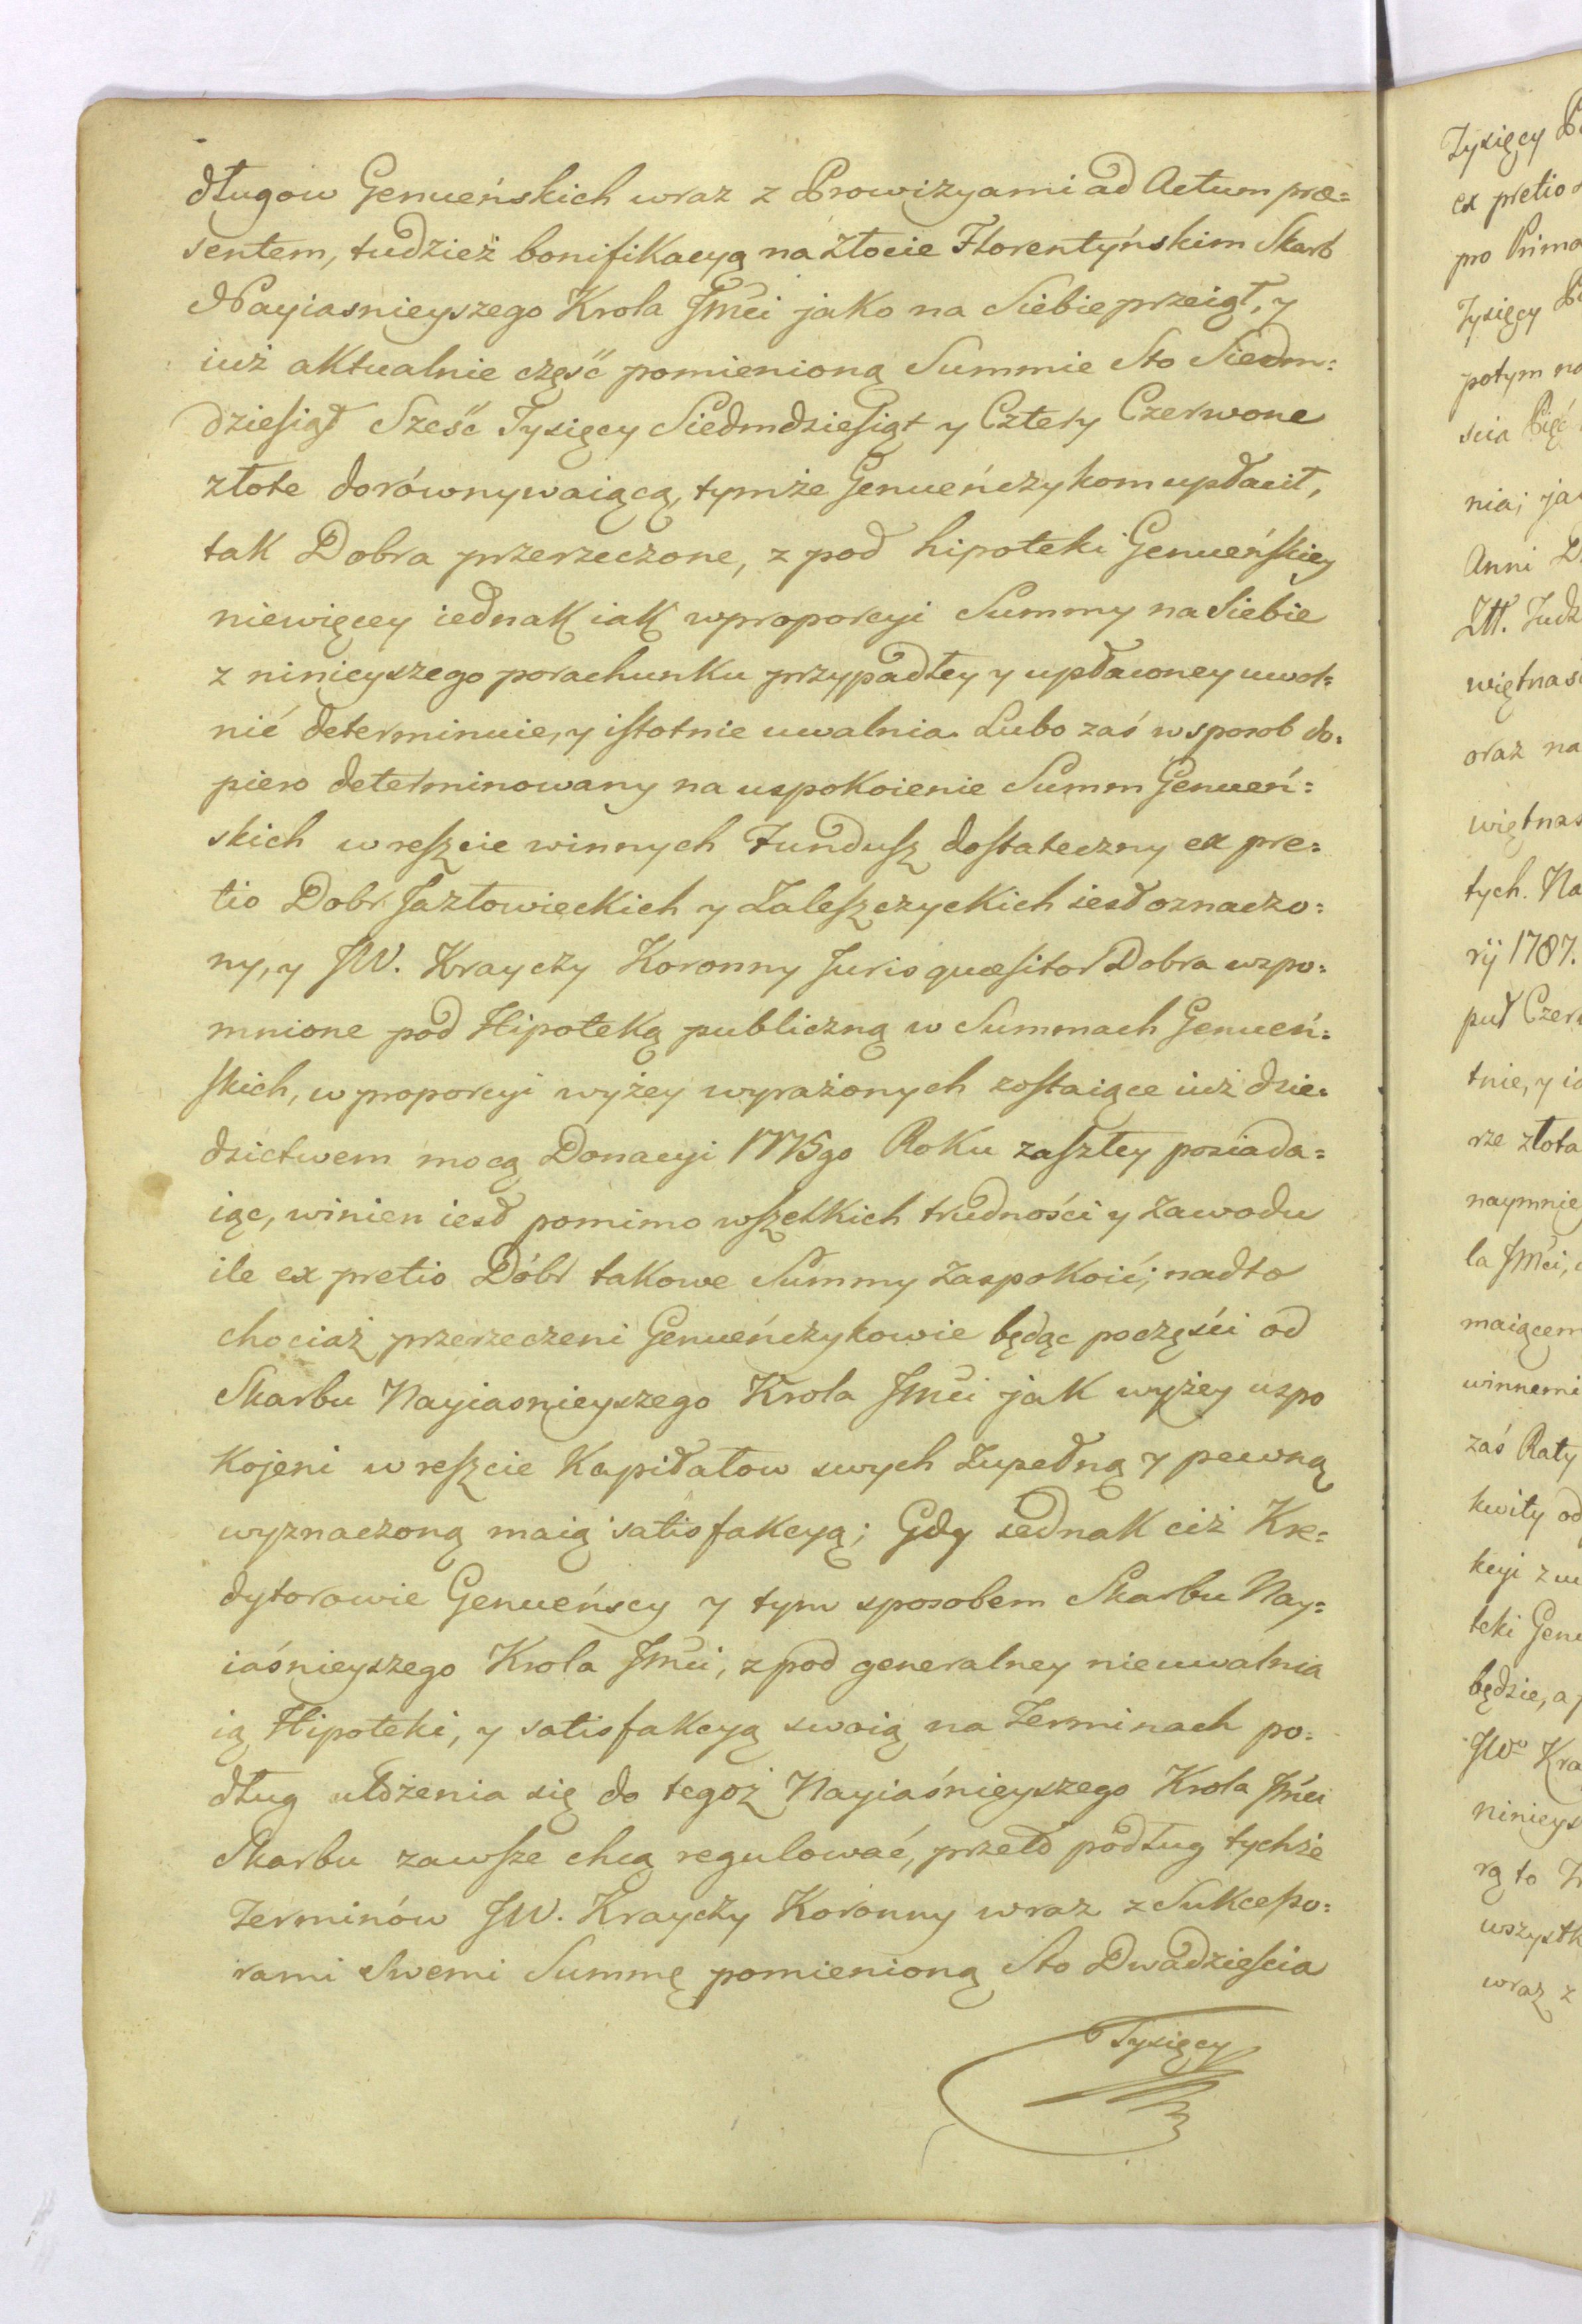 długow Genueńskich wraz z Prowizyami ad Actum præ=
sentem, tudzież bonifikacyą na złocie Florentyńskim Skarb
Nayiasnieyszego Krola Jmći jako na Siebie przeiął, y
iuż aktualnie część pomienioną Summie Sto Siedm=
dziesiąt Sześć Tysięcy Siedmdziesiąt y Cztery Czerwone
złote dorównywaiącą, tymże Genueńczykom upłacił,
tak Dobra przerzeczone, z pod hipoteki Genueńskiey
niewięcey iednak iak wproporcyi Summy na Siebie
z ninieyszego porachunku przypadłey y upłaconey uwol=
nić determinuie, y istotnie uwalnia. Lubo zaś w sposob do=
piero determinowany na uspokoienie Summ Genueń=
skich w reszcie winnych Fundusz dostateczny ex pre=
tio Dobr Jazłowieckich y Zaleszczyckich iest oznaczo=
ny, y JW. Krayczy Koronny Juris quæsitor Dobra wzpo=
mnione pod Hipoteką publiczną w Summach Genueń=
skich, w proporcyi wyżey wyrażonych zostaiące iuż dzie=
dzictwem mocą Donacyi 1775go Roku zaszłey posiada=
iąc, winien iest pomimo wszelkich trudności y zawodu
ile ex pretio Dóbr takowe Summy zaspokoić; nadto
chociaż przerzeczeni Genueńczykowie będąc poczęści od
Skarbu Nayiasnieyszego Krola Jmći jak wyżey uspo
kojeni w reszcie Kapitałow swych zupełną y pewną
wyznaczoną maią satisfakcyą; Gdy iednak ciż Kre=
dytorowie Genueńscy y tym sposobem Skarbu Nay=
iaśnieyszego Krola Jmći, z pod generalney nieuwalnia
ią Hipoteki, y satisfakcyą swoią na Terminach po=
dług ułożenia się do tegoż Nayiaśnieyszego Krola Jmći
Skarbu zawsze chcą regulować, przeto podług tychże
Terminów JW. Krayczy Koronny wraz z Sukcesso=
rami Swemi Summę pomienioną Sto Dwadzieścia
Tysięcy
Tysięcy
ex pretio
pro Prima
Tysięcy
potym na
scia Pięć
nia; jak
Anni
Ztt. Tudz
więtnas
oraz na
więtnas
tych. Na
rij 1787.
put Czer
tnie, y ia
rze złota
naymnie
la Jmći,
maiącem
winnemi
zaś Raty
kwity od
kcyi z
teki Gen
będzie, a
JWo Kra
ninieys
rą to
wszystk
wraz z